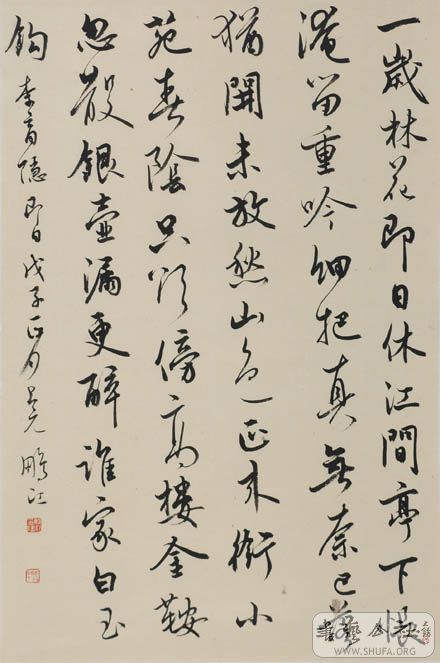 一歲林花即日休江間亭下悵
淹留重吟細把真無奈已落
猶開未放愁山色正来銜小
苑春陰只欲傍高樓金鞍
忽散銀壺漏更醉誰家白玉
鈎
李商隱即日戊子正月 鵬江
書藝公社
WWW.SHUFA.ORG